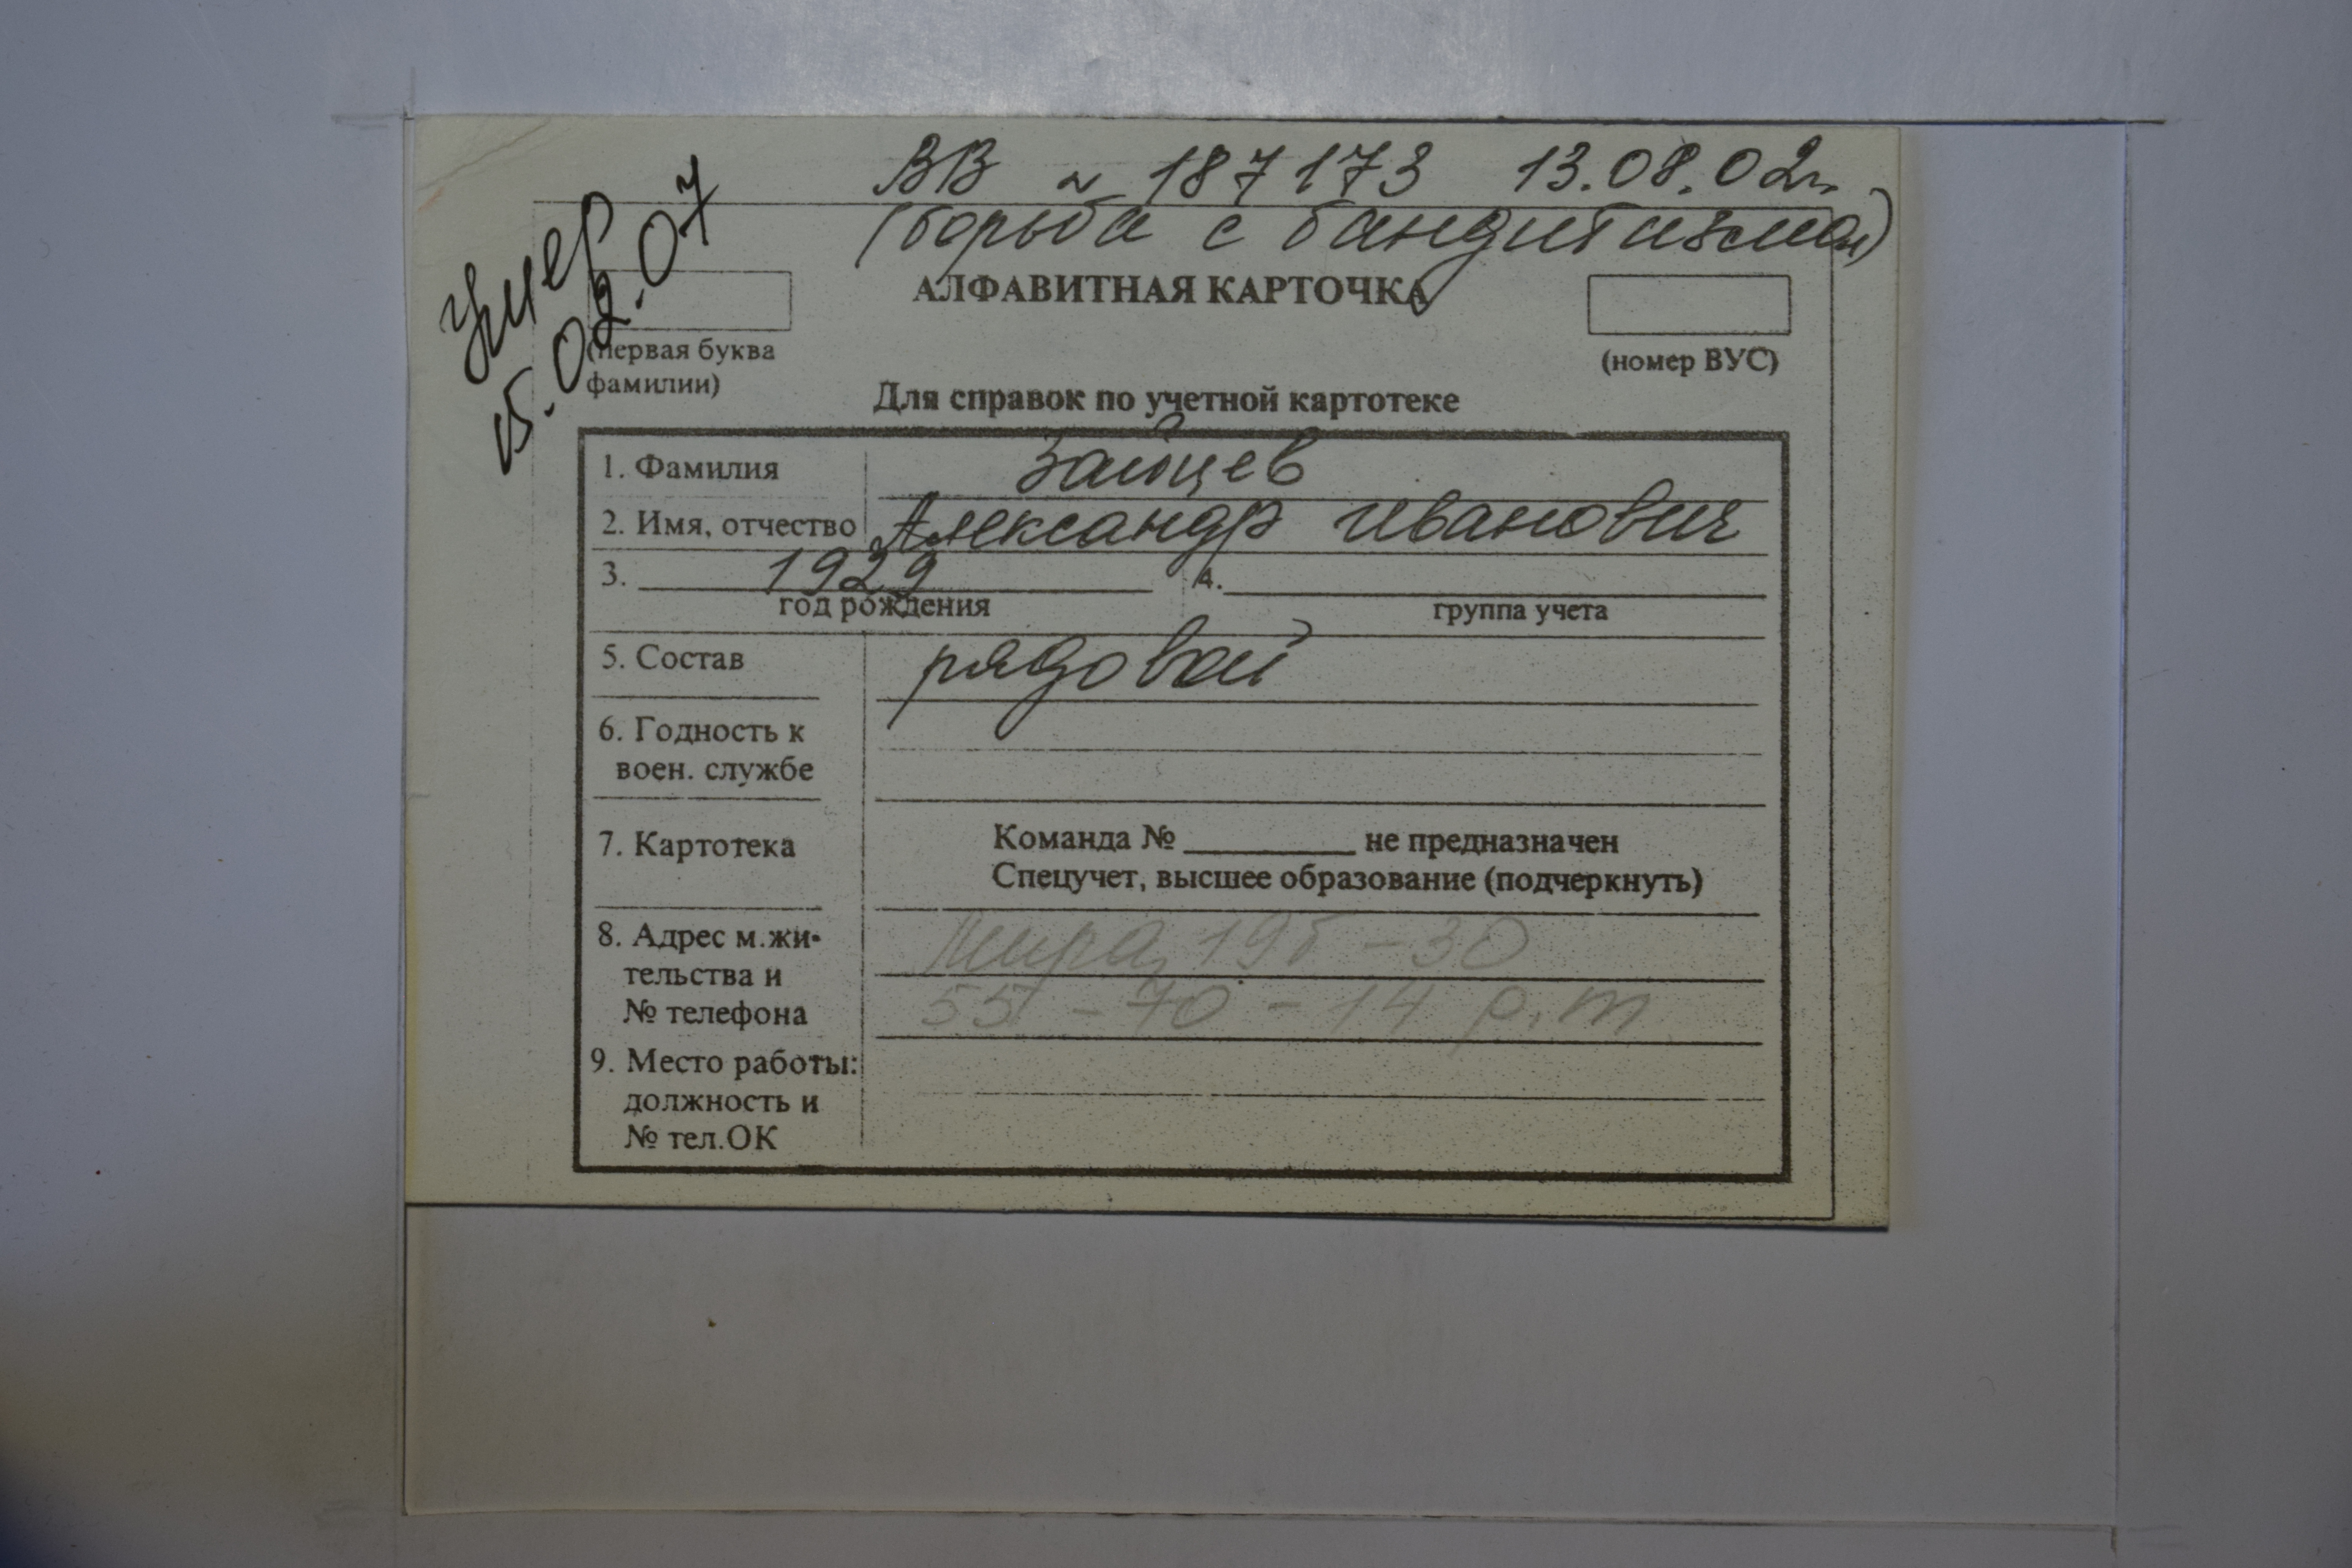 ВВ № 187173 13.08.02г.
(борьба с бандитизмом)
Умер
15.02.07
АЛФАВИТНАЯ КАРТОЧКА
(первая буква
фамилии)
(номер ВУС)
Для справок по учетной картотеке
1. Фамилия Зайцев
2. Имя, отчество Александр Иванович
3. 1929 4.
год рождения группа учета
5. Состав рядовой
6. Годность к
воен. службе
7. Картотека Команда № ______ не предназначен
Спецучет, высшее образование (подчеркнуть)
8. Адрес м.жи- Мира, 19б - 30
тельства и
№ телефона 55 - 70 - 14 р.т
9. Место работы:
должность и
№ тел.ОК